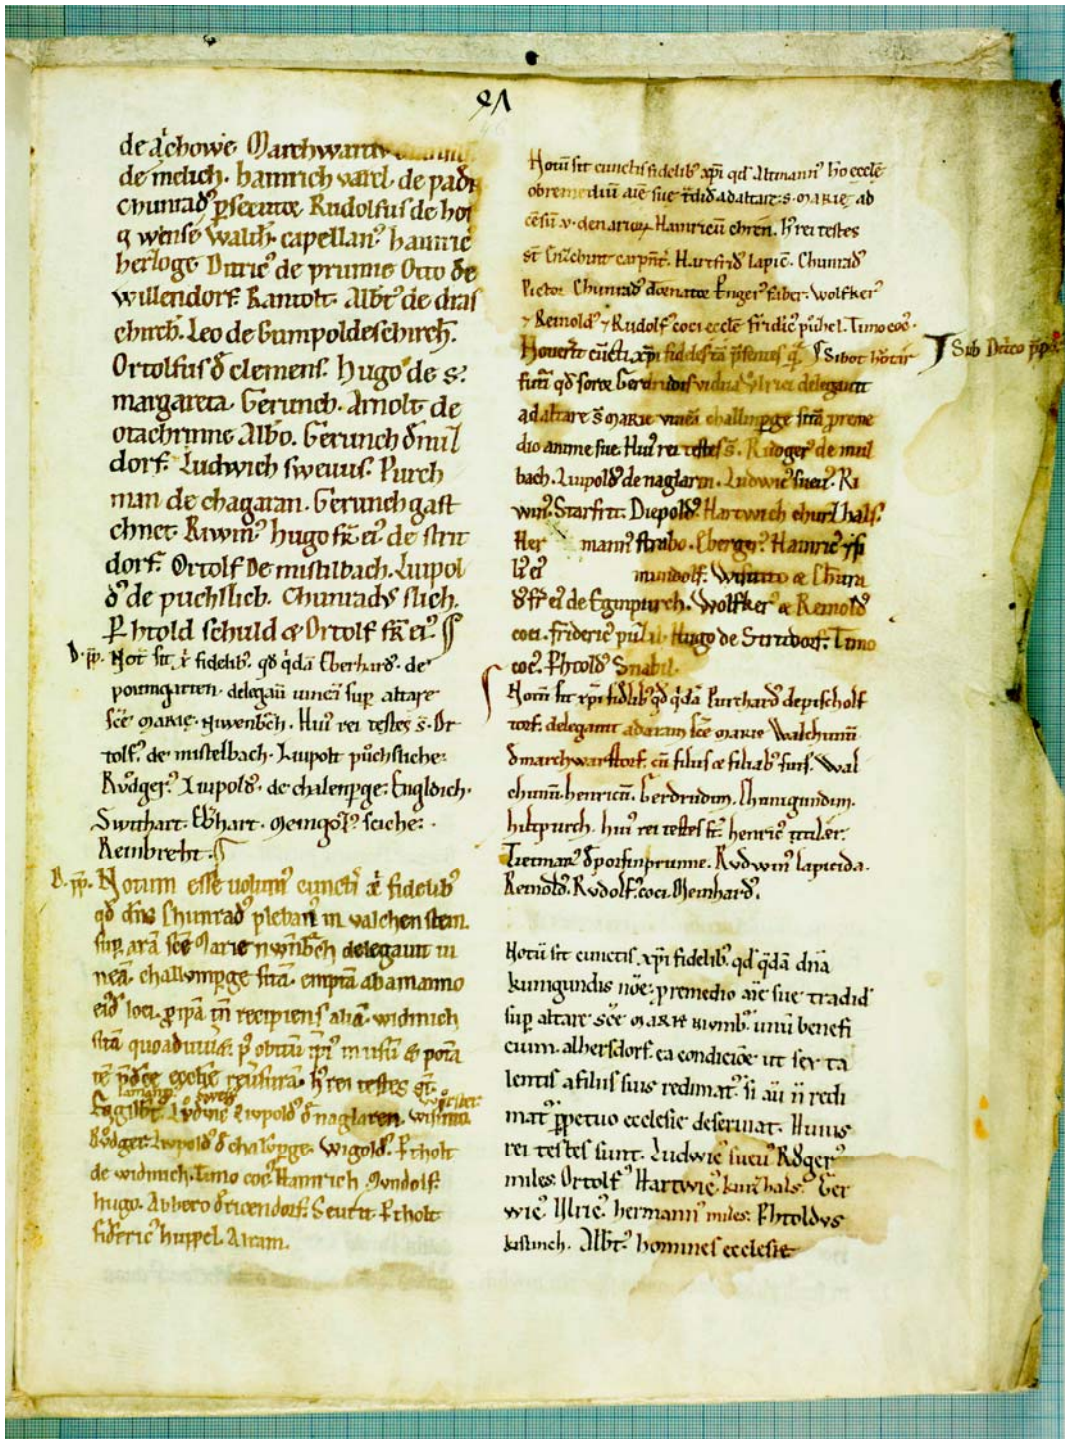 de achowe. Marchwart
de melich. hainrich varel. de padn
chunrad' persecutor Rudolfus de hol
wense walth. capellan' hainric'
herloge Ditric' de prunne Otto de
willendorf. Rantolt. Albt' de dras
chirch. Leo de Gumpoldeschirch.
Ortolfus d' clemens. hugo de s.
margareta. Gerunch. Arnolt de
otachrinne Albo. Gerunch d' mul
dorf. Ludwich swevus. Purch
man de chagaran. Gerunch gast
chnet. Riwin' hugo fr' ei' de strit
dorf. Ortolf de mistilbach. Liupol
d' de puchslieb. Chunradus slich.
P'htold schuld & Ortolf fr' ei'
D. pp. Not sit x' fidelib' qd q'da Eberhard'. de
poumgarten. delegauit uinea sup altare
sce marie. niwenb'ch. Hui' rei testes s. Or
tolf' de mistelbach. Liupolt puchsliche.
Rudger' Liupold'. de chalenp'ge. Engldich.
Swithart. Eb'hart. Meingos' sciche.
Reinbreht.
D. pp. Notum esse uolum' cunctis xi fidelib'
qd dns Chunrad' pleban' in valchenstein.
sup ara sce Marie nwnb'ch delegauit ui
nea. challnperge sita. emptā ab amanno
eid' loci. recipiens alia. widnich
sita quoad uiuit. p' obitu ipsi' in usu &
h' rei testes st'.
Engilbt'. Ludwic' Liupold' d' naglaren. wisinto.
Rudger. Liupold d' chalnperge. Wigold'. P'tholt
de widnich. Timo coc' Hainrich Mundolf.
hugo. Abbero d' riwendorf. P'tholt
frideric' huppel. Atram.
Notu sit cunctis fidelib' xpi qd Altmann' ho ecclē
ob remediū aīe sue t'did' ad altare. s. MARIE ab
cēsū. v. denariorum Hainricū ehren. h' rei testes
st Carpnt'. Hartfrid' lapic'. Chunrad'
Pictor Chunrad' Enger' faber. Wolfker'
7 Reinold' 7 Rudolf' coci ecclē fridic' puhel. Timo coc'.
Nouerit cūcti xpi fideles tā p'sentes q' Sibot
Sub Detrico p'p'
futi qd soror Gerdrudis vidua Ulrici delegauit
ad altare S MARIE vineā challinp'ge sitā p reme
dio anime sue. Hui' rei testes s. Rudoger' de mul
bach. Liupold' de naglarn. Ludwic' sueu'. Ri
win'. Starfrit. Diepold' Hartwich churzhals.
Her mann' strabo. Eberger'. Hainric'
mundolf. Wisinto & Chunra
d' fr' ei' de Eginpurch. Wolfker' & Reinold'
coci. frideric' pulib Hugo de Stritdorf. Timo
coc'. P'htold' Snabil.
Notū sit xpi fidlib' qd q'dā Purchard' de pischolf
torf. delegauit ad aram sce MARIE Walchunū
d' marchwarstorf. cū filiis & filiab' suis. Wal
chunū. henricū. Gerdrudim. Chunigundim.
hiltpurch. hui' rei testes st'. henric' 
Tietmar' d' porsinprunne. Rudwin' lapicida.
Reinold'. Rudolf' coci. Meinhard'.
Notū sit cunctis xpi fidelib'. qd q'dā dnā
kunigundis nōe. p remedio aīe sue tradid'
sup altare sce MARIE niwnb'. unū benefi
cium. albersdorf. ea condiciōe ut sex ta
lentis a filiis suis redimat'. si aū ñ redi
mat' ppetuo ecclesie deseruiat. Huius
rei testes sunt. Ludwic' sueu' Rudger'
miles. Ortolf' Hartwic' kurzhals. Ger
wic'. Ulric'. hermann' miles. P'htoldus
Albt'. homines ecclesie